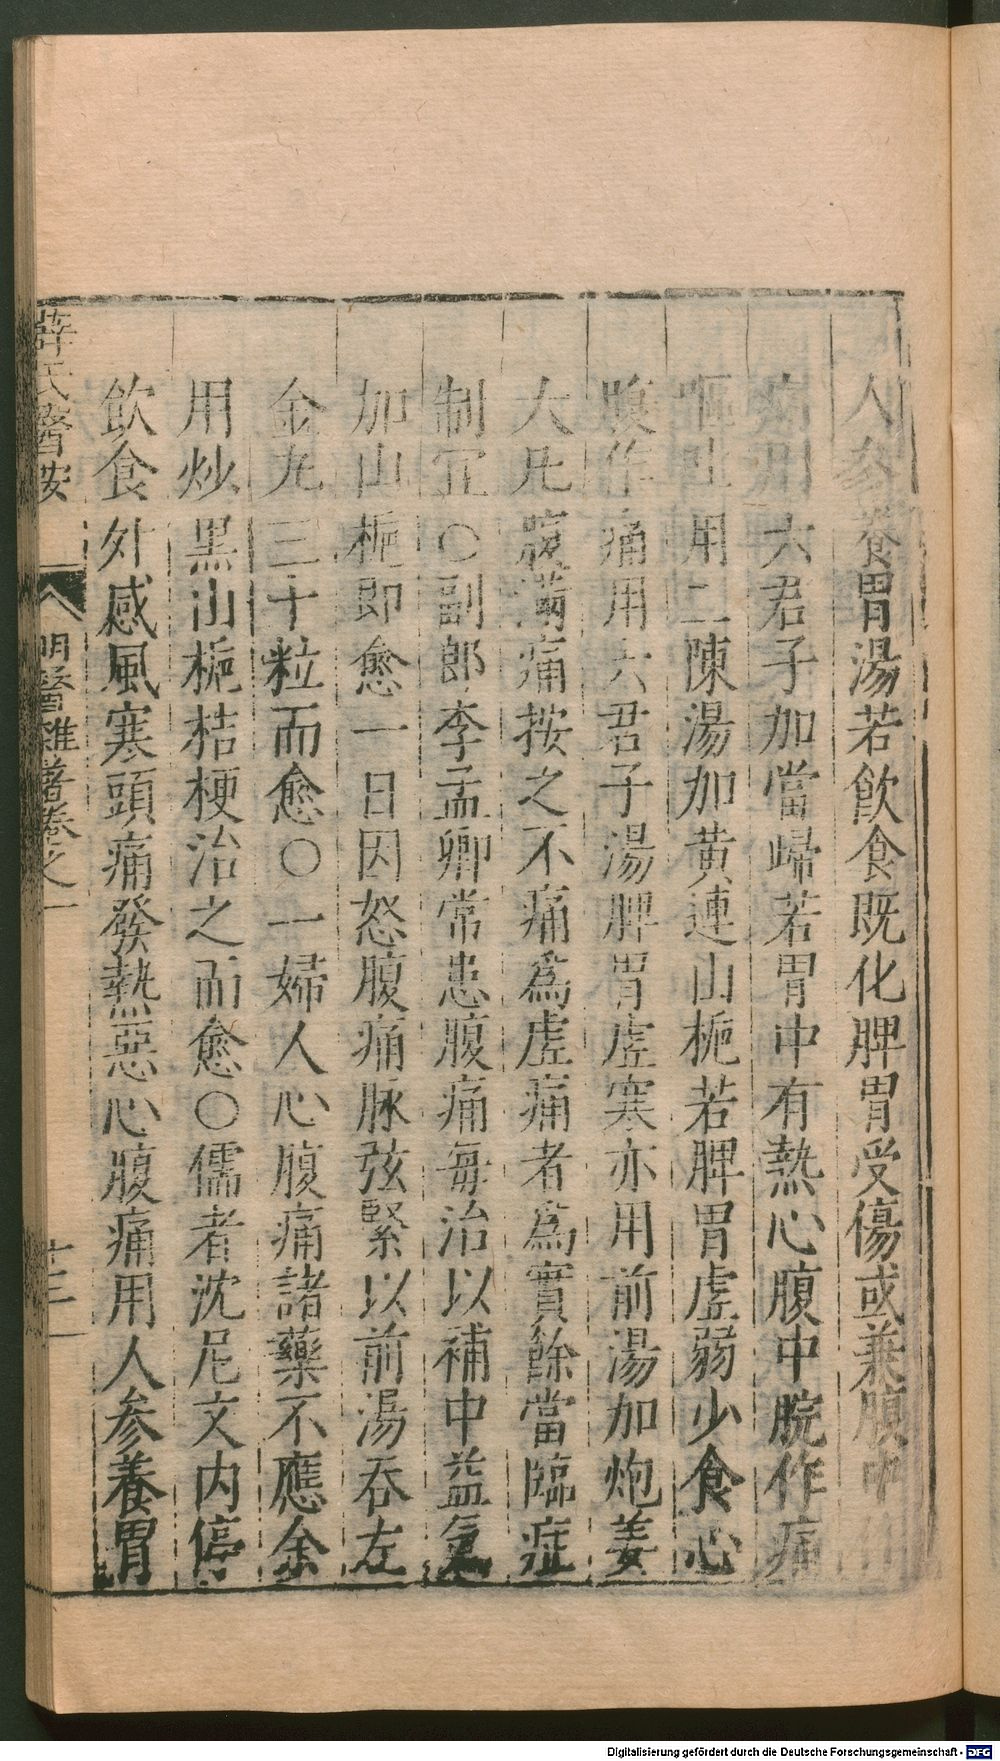 人參養胃湯若飲食既化脾胃受傷或兼腹中
六君子加當歸若胃中有熱心腹中脘作痛
嘔吐用二陳湯加黃連山梔若脾胃虛弱少食心
腹作痛用六君子湯脾胃虛寒亦用前湯加炮姜
大凡腹滿痛按之不痛爲虛痛者爲實餘當臨症
制宜〇副郎李孟卿常患腹痛每治以補中益氣
加山梔即愈一日因怒腹痛脉弦緊以前湯吞左
金丸三十粒而愈〇一婦人心腹痛諸藥不應余
用炒黑山梔桔梗治之而愈〇儒者沈尼文内停
飲食外感風寒頭痛發熱惡心腹痛用人參養胃
薛氏醫按 明醫雜著卷之一
Digitalisierung gefördert durch die Deutsche Forschungsgemeinschaft - DFG